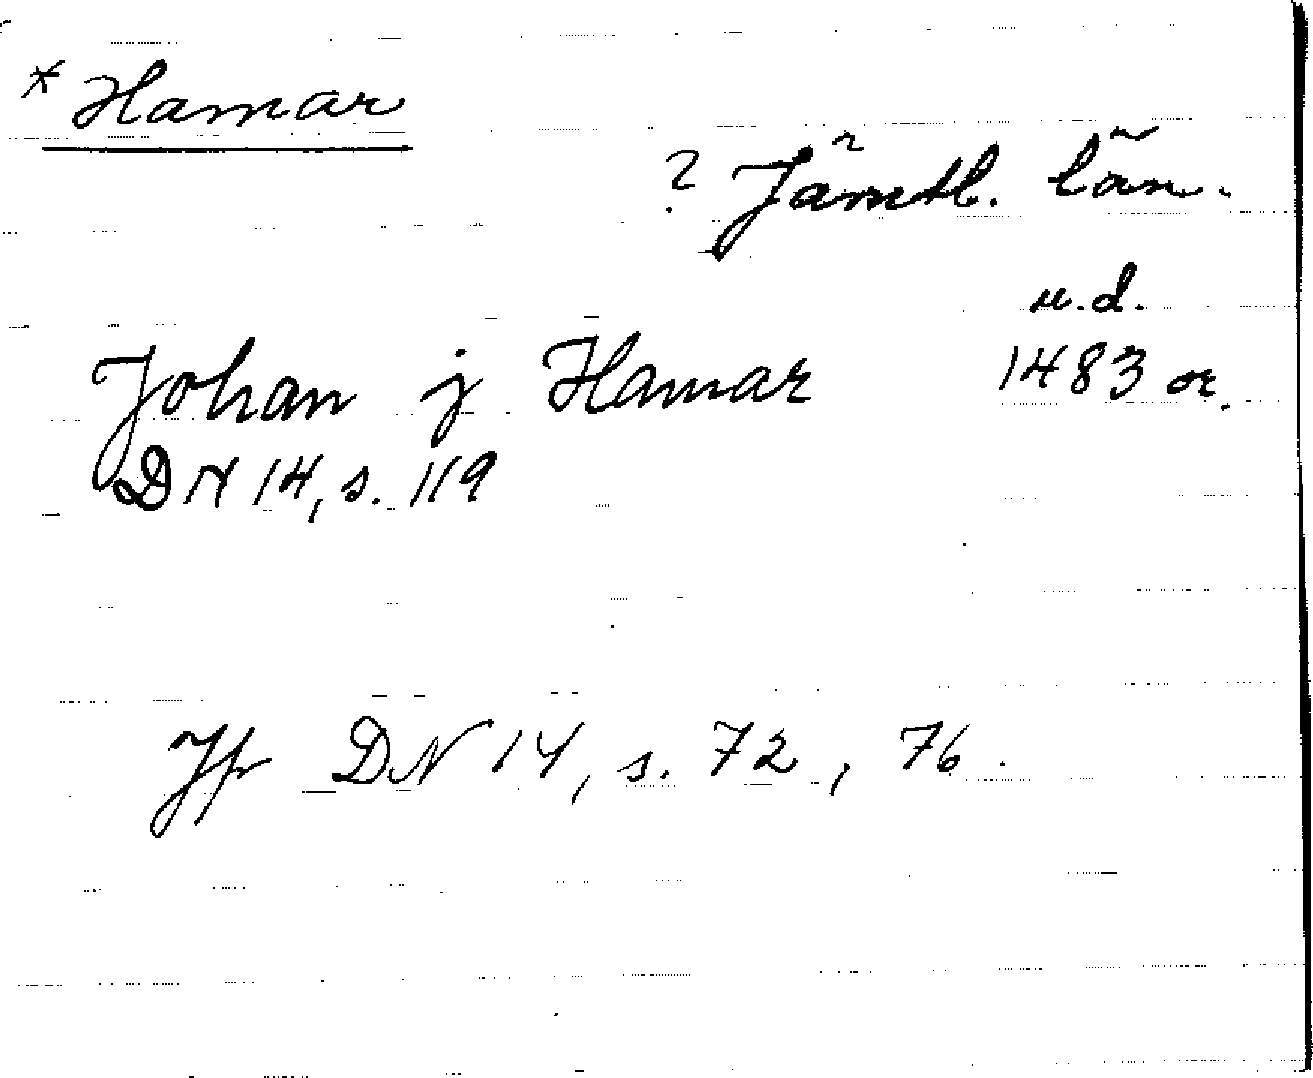 * Hamar
? Jämtl. län.
u.d.
Johan j Hamar 1483 or.
DN 14, s. 119
Jfr DN 14, s. 72, 76.